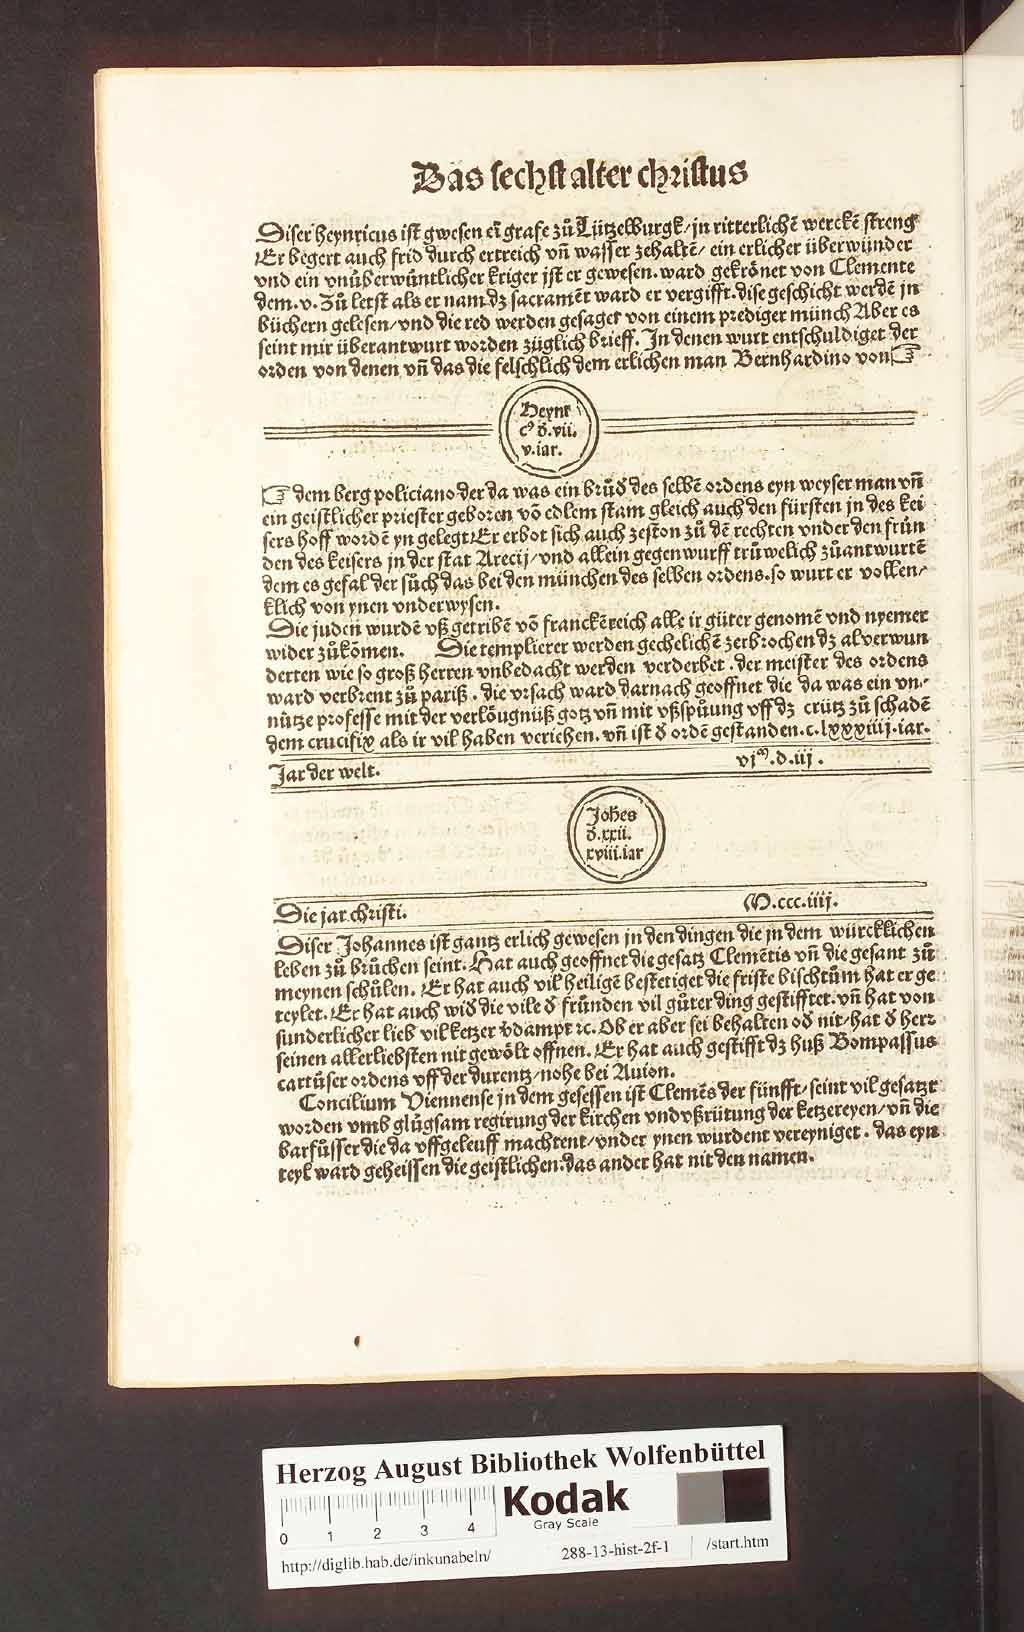 Das sechst alter christus
Diser heynricus ist gwesen eī grafe zů Lützelburgk/ jn ritterlichē werckē streng
Er begert auch frid durch ertreich vñ wasser zehaltē/ ein erlicher überwünder
vnd ein vnüberwüntlicher kriger jst er gewesen. ward gekrönet von Clemente
dem .v. Zů letst als er nam dz sacramēt ward er vergifft. dise geschicht werdē jn
büchern gelesen/ vnd die red werden gesaget von einem prediger münch Aber es
seint mir überantwurt worden züglich brieff. In denen wurt entschuldiget der
orden von denen vñ das die felschlich dem erlichen man Bernhardino von ☞
Heynr
c⁹ ď .vii.
v. iar.
☞ dem berg policiano der da was ein brůď des selbē ordens eyn weyser man vñ
ein geistlicher priester geboren vō edlem stam gleich auch den fürsten jn des kei
sers hoff wordē yn gelegt Er erbot sich auch zeston zů dē rechten vnder den frün
den des keisers jn der stat Arecij/ vnd allein gegenwurff trüwelich zůantwurtē
dem es gefal der sůch das bei den münchen des selben ordens. so wurt er vollen/
klich von ynen vnderwysen.
Die juden wurdē vß getribē vō franckēreich alle ir güter genomē vnd nyemer
wider zůkomen. Die templierer werden gechelichē zerbrochen dz al verwun
derten wie so groß herren vnbedacht werden verderbet . der meister des ordens
ward verbrent zů pariß . die vrsach ward darnach geoffnet die da was ein vn/
nütze professe mit der verlöugnüß gotz vñ mit vßspůung vff dz crütz zů schadē
dem crucifix als ir vil haben veriehen. vñ ist ď ordē gestanden .c. lxxxiiij. iar.
Jar der welt. vjᵐ .d. iij .
Johēs
ď .xxii.
xviii. iar
Die jar christi. M. ccc. iiij.
Diser Johannes ist gantz erlich gewesen jn den dingen die jn dem würcklichen
leben zů brůchen seint. Hat auch geoffnet die gesatz Clemētis vñ die gesant zů
meynen schůlen. Er hat auch vil heiligē bestetiget die friste bischtům hat er ge
teylet. Er hat auch wiď die vile ď fründen vil gůter ding gestifftet. vñ hat von
sunderlicher lieb vil ketzer v̄dampt ꝛc. Ob er aber sei behalten oď nit/ hat ď herr
seinen allerliebsten nit gewölt offnen. Er hat auch gestifft dz huß Bompassus
cartüser ordens vff der durentz/ nohe bei Auion.
Concilium Viennense jn dem gesessen ist Clemēs der fünfft/ seint vil gesatzt
worden vmb glügsam regirung der kirchen vnd vßrütung der ketzereyen/ vñ die
barfůsser die da vffgeleuff machtent/ vnder ynen wurdent vereyniget . das eyn
teyl ward geheissen die geistlichen. das ander hat nit den namen.
Herzog August Bibliothek Wolfenbüttel
0 1 2 3 4
Kodak
Gray Scale
http://diglib.hab.de/inkunabeln/ 288-13-hist-2f-1 /start.htm